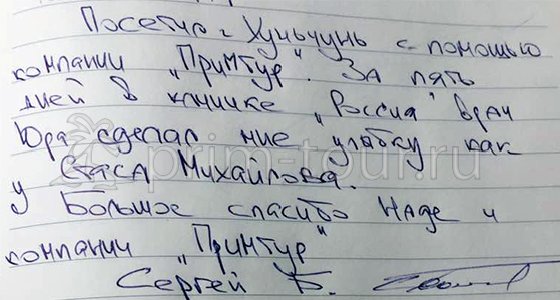 Посетил г Хуньчунь с помощью
компании "Примтур". За пять
дней в клинике "Россия" врач
Юра сделал мне улыбку как
у Стаса Михайлова.
Большое спасибо Наде и
компании "Примтур"
Сергей Б.
prim-tour.ru